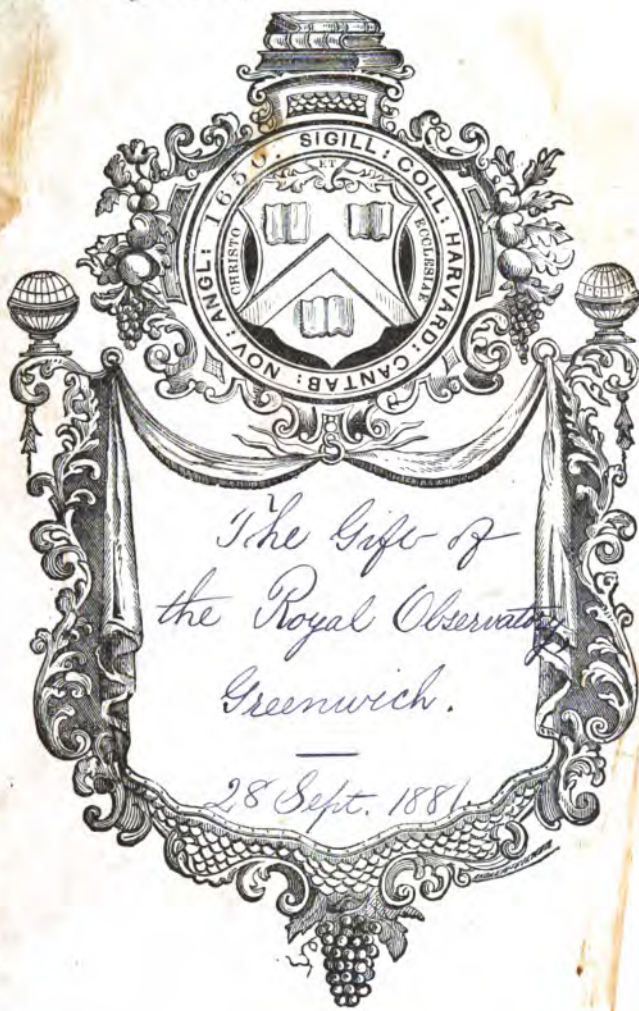 SIGILL: COLL: HARVARD: CANTAB: NOV: ANGL: 1650.
CHRISTO ET ECCLESIAE
The Gift of
the Royal Observatory,
Greenwich.
28 Sept. 1881.